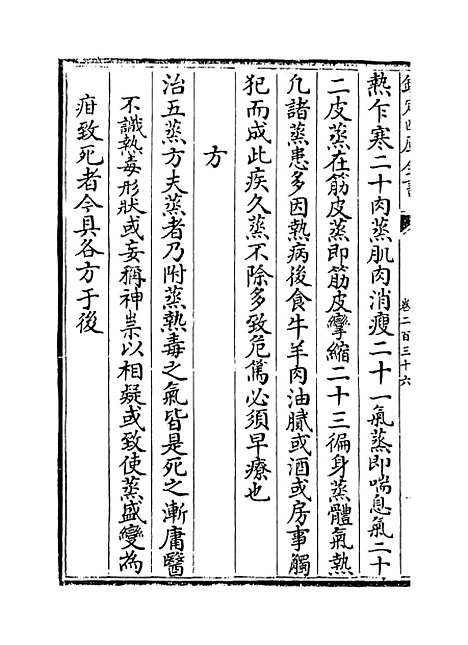 欽定四庫全書
卷二百三十六
熱乍寒二十肉蒸肌肉消瘦二十一氣蒸即喘息氣二十
二皮蒸在筋皮蒸即筋皮攣縮二十三徧身蒸體氣熱
凢諸蒸患多因熱病後食牛羊肉油膩或酒或房事觸
犯而成此疾久蒸不除多致危篤必須早療也
方
治五蒸方夫蒸者乃附蒸熱毒之氣皆是死之漸庸醫
不識熱毒形狀或妄稱神祟以相疑或致使蒸盛變為
疳致死者今具各方于後